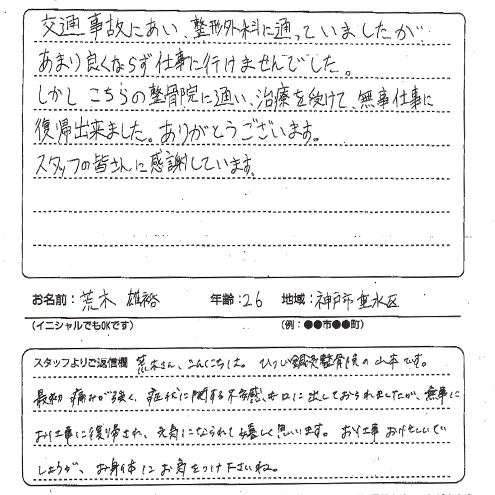 交通事故にあい、整形外科に通っていましたが、
あまり良くならず仕事に行けませんでした。
しかしこちらの整骨院に通い、治療を続けて、無事仕事に
復帰出来ました。ありがとうございます。
スタッフの皆さんに感謝しています。
お名前：荒木 雄裕 年齢：26 地域：神戸市垂水区
(イニシャルでもOKです) (例：●●市●●町)
スタッフよりご返信欄 荒木さん、こんにちは。ひつじ鍼灸整骨院の山本です。
最初 痛みが強く、症状に関する不安感も口に出しておられましたが、無事に
お仕事に復帰され、元気になられて嬉しく思います。お仕事お忙しいで
しょうが、お身体にお気をつけ下さいね。